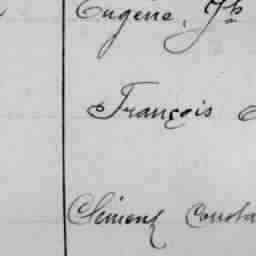 Eugène, Jh
François
Clément Consta